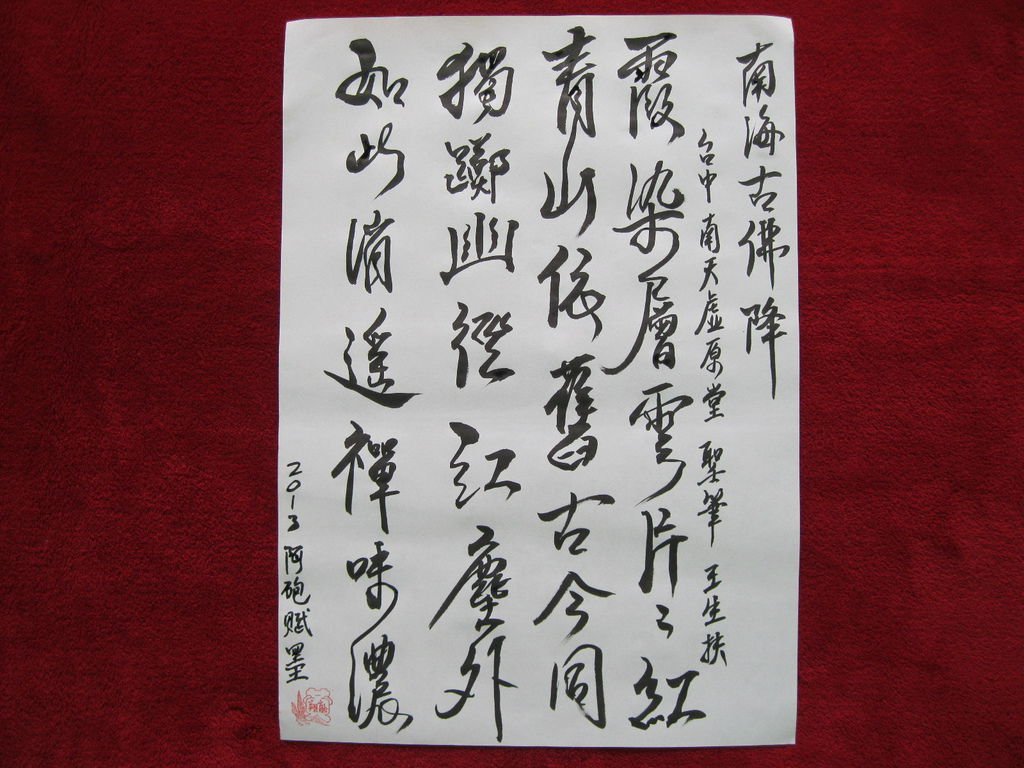 南海古佛降
台中南天虛原堂 聖筆 王生扶
霞染層雲片々紅
青山依舊古今同
獨躑幽徑紅塵外
如此消遥禪味濃
2013 阿砲賦墨